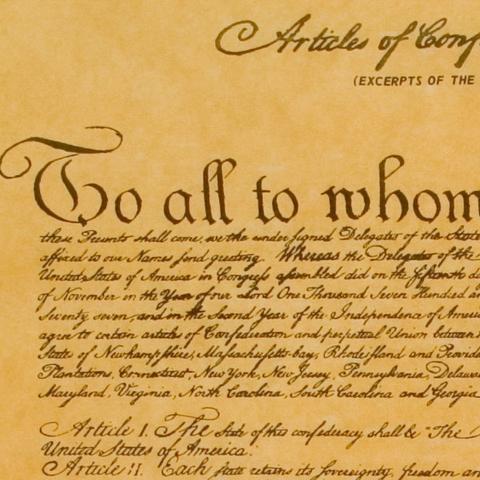 Articles of Conf
(EXCERPTS OF THE
To all to whom
these Presents shall come, we the under signed Delegates of the State
affixed to our Names send greeting. Whereas the Delegates of the
United States of America in Congress assembled did on the fifteenth d
of November in the Year of our Lord One Thousand Seven Hundred an
Seventy seven, and in the Second Year of the Independence of Americ
agree to certain articles of Confederation and perpetual Union between
States of Newhampshire, Massachusetts-bay, Rhodeisland and Provide
Plantations, Connecticut, New York, New Jersey, Pennsylvania, Delawa
Maryland, Virginia, North Carolina, South Carolina and Georgia
Article I. The State of this confederacy shall be "The
United States of America."
Article II. Each state retains its sovereignty, freedom an